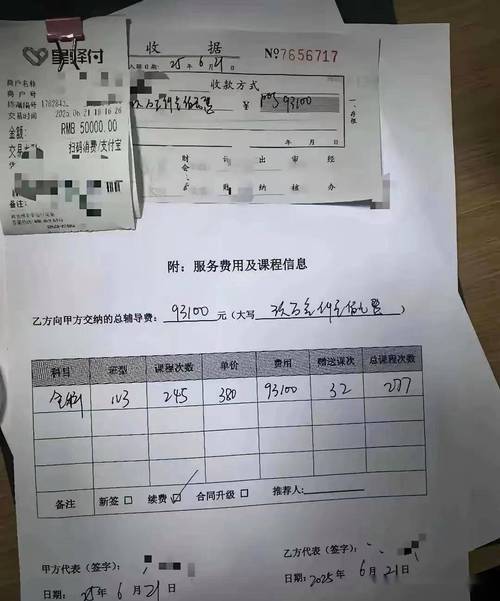 星驿付
商户名
商户号
终端编号 1762843
交易时间 2025.06.21 18:16:26
金额: RMB 50000.00
交易 扫码消费/支付宝
备注:
收 据
№7656717
入账日期: 25年6月21
收款方式
玖万叁仟壹佰元整 ¥ 93100
年 月 日
财会 出纳 审核 经办
附：服务费用及课程信息
乙方向甲方交纳的总辅导费: 93100 元 (大写 玖万叁仟壹佰元整 )
科目 班型 课程次数 单价 费用 赠送课次 总课程次数
全科 1V3 245 380 93100 32 277
备注 新签 □ 续费 ☑ 合同升级 □ 推荐人:
甲方代表（签字）:
乙方代表（签字）:
日期: 25年6月21日
日期: 2025年6月21日